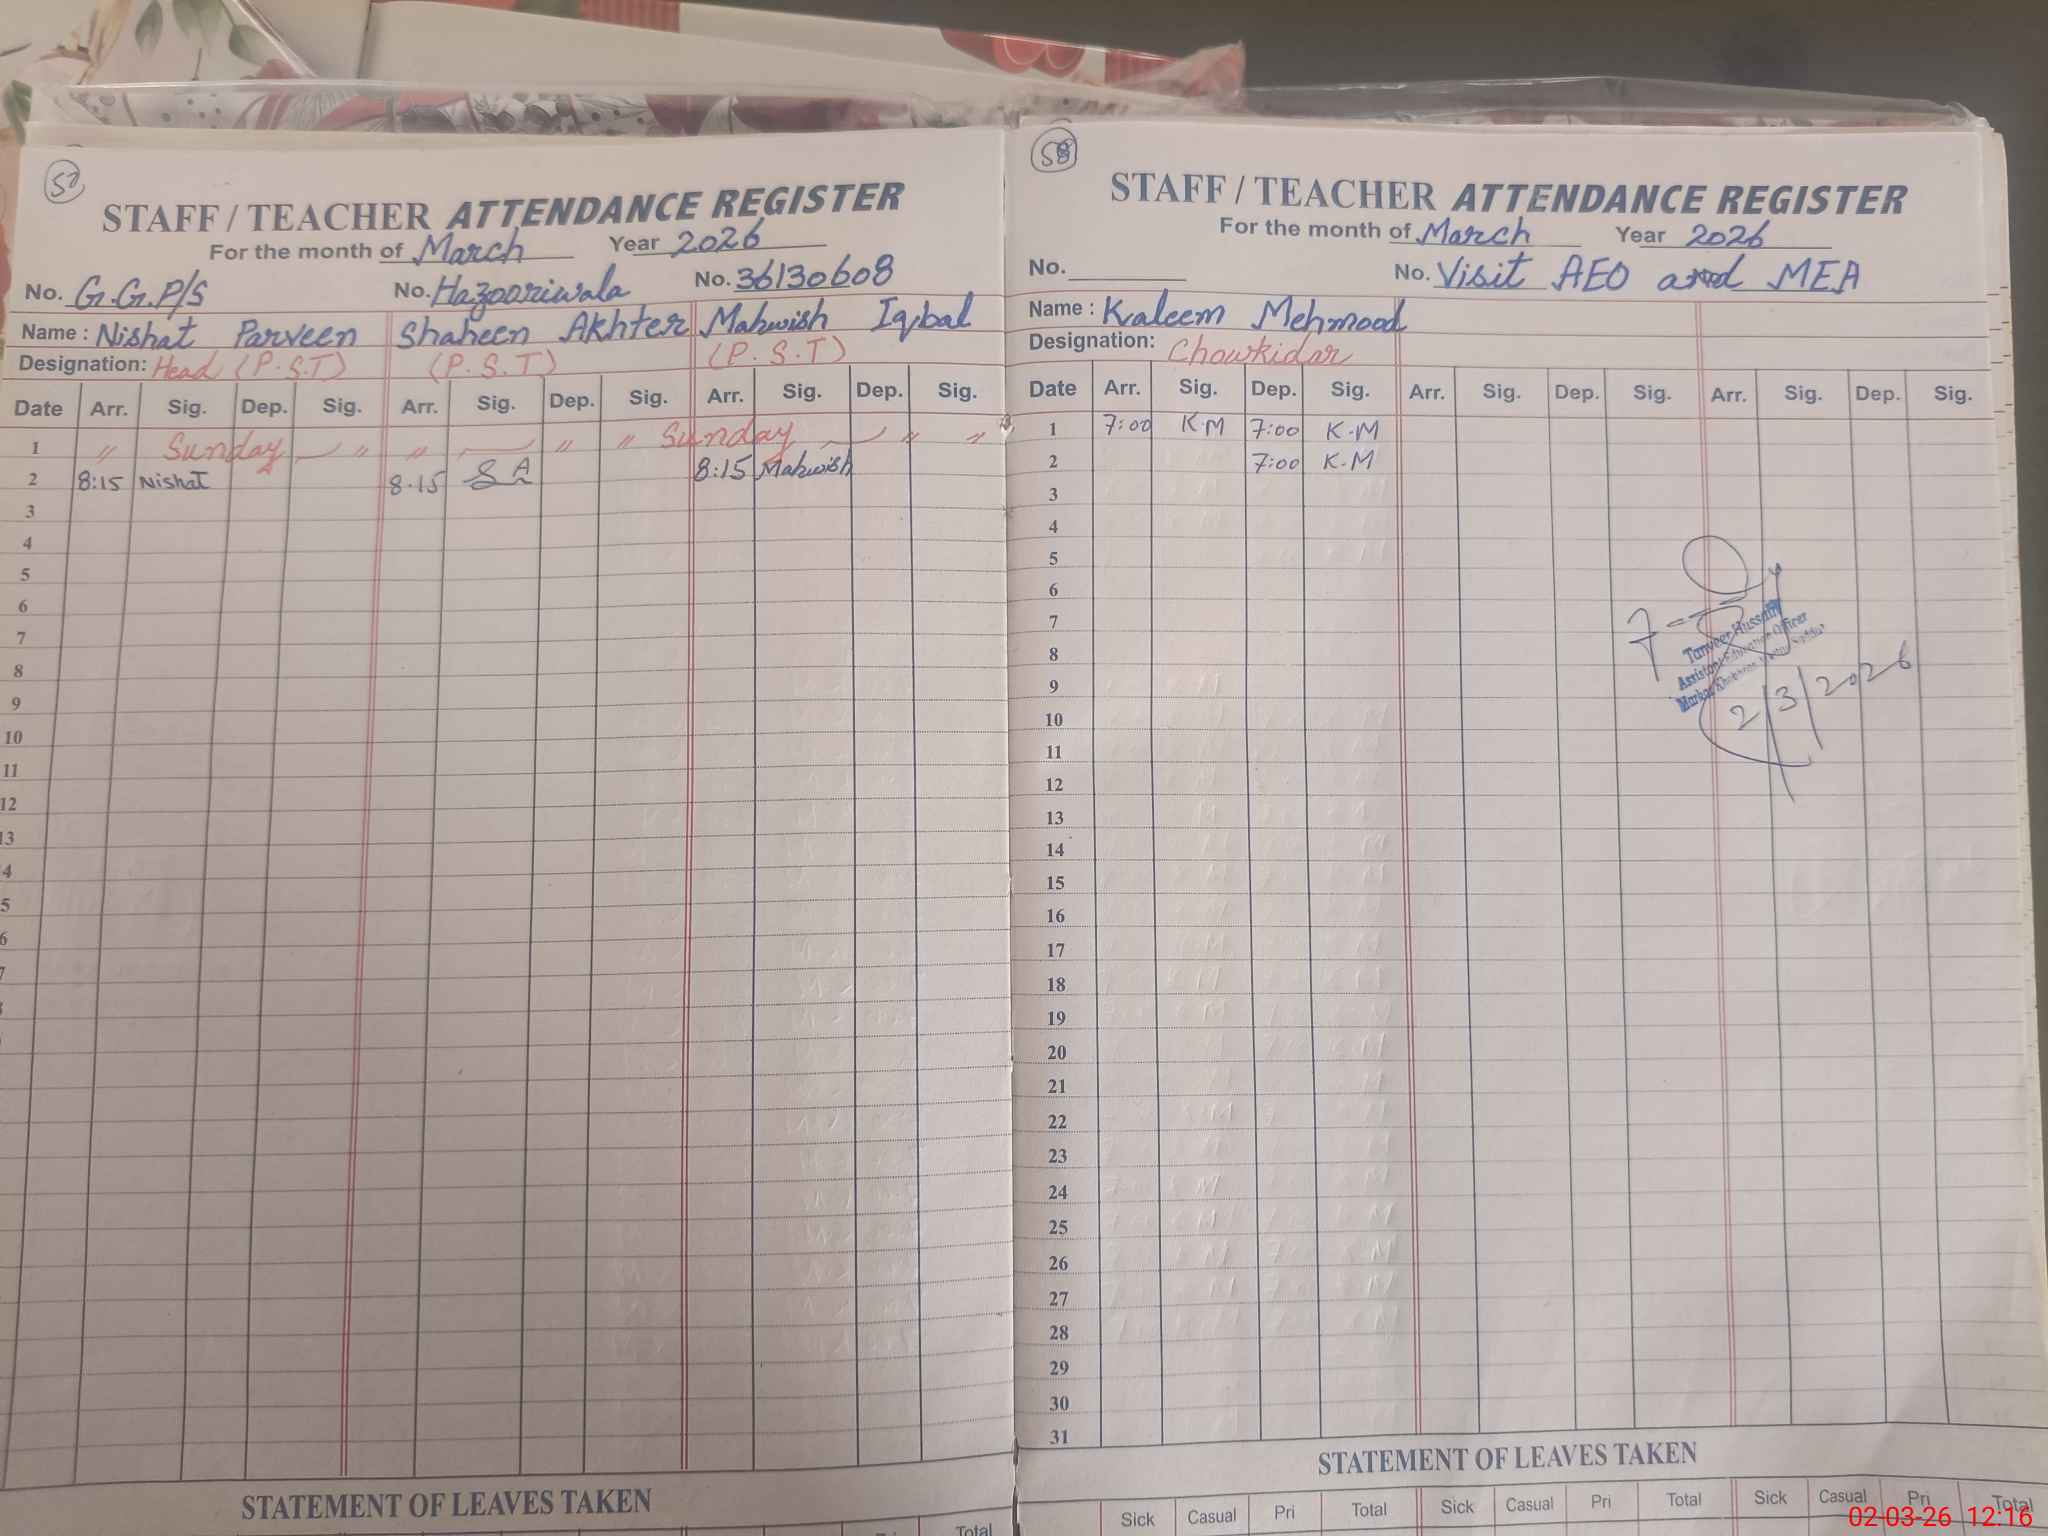 57
STAFF / TEACHER ATTENDANCE REGISTER
For the month of March Year 2026
No. G.G.P/S No. Hazooriwala No. 36130608
Name : Nishat Parveen Shaheen Akhter Mahwish Iqbal
Designation: Head (P.S.T) (P.S.T) (P.S.T)
Date Arr. Sig. Dep. Sig. Arr. Sig. Dep. Sig. Arr. Sig. Dep. Sig.
1 〃 Sunday — 〃 〃 — 〃 〃 Sunday — 〃 〃
2 8:15 Nishat 8.15 SA 8:15 Mahwish
3
4
5
6
7
8
9
10
11
12
13
4
5
6
7
STATEMENT OF LEAVES TAKEN
Total
58
STAFF / TEACHER ATTENDANCE REGISTER
For the month of March Year 2026
No. No. Visit AEO and MEA
Name : Kaleem Mehmood
Designation: Chowkidar
Date Arr. Sig. Dep. Sig. Arr. Sig. Dep. Sig. Arr. Sig. Dep. Sig.
1 7:00 K.M 7:00 K.M
2 7:00 K.M
3
4
5
6
7
8
9
10
11
12
13
14
15
16
17
18
19
20
21
22
23
24
25
26
27
28
29
30
31
Tanveer Hussain
Assistant Education Officer
Markaz
2/3/2026
STATEMENT OF LEAVES TAKEN
Sick Casual Pri Total Sick Casual Pri Total Sick Casual Pri Total
02-03-26 12:16